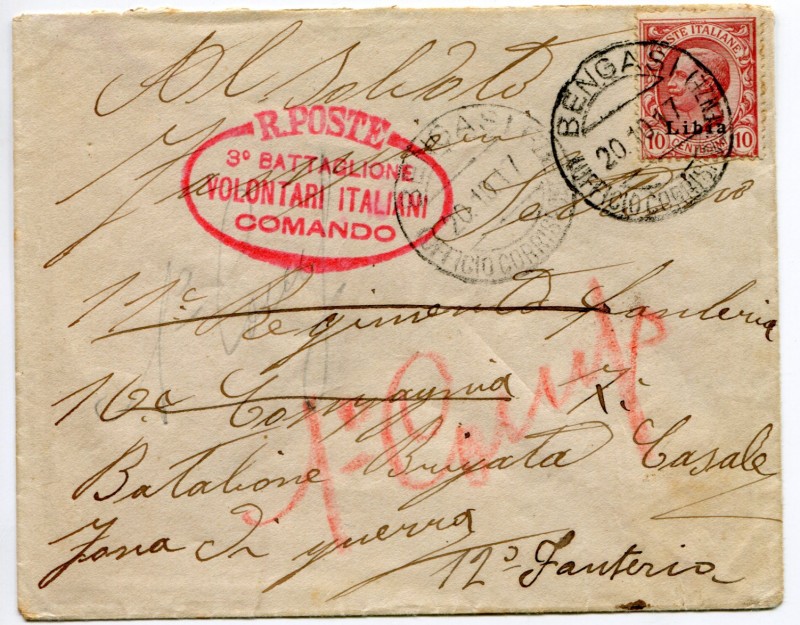 POSTE ITALIANE
Libia
10 CENTESIMI 10
BENGASI
20.1.17
UFFICIO CORRISP
BENGASI
20.1.17
UFFICIO CORRISP
R. POSTE
3° BATTAGLIONE
VOLONTARI ITALIANI
COMANDO
Al soldato
11° Regimento Fanteria
16a Compagnia
Batalione Brigata Casale
Zona di guerra
12° Fanteria
1a Comp